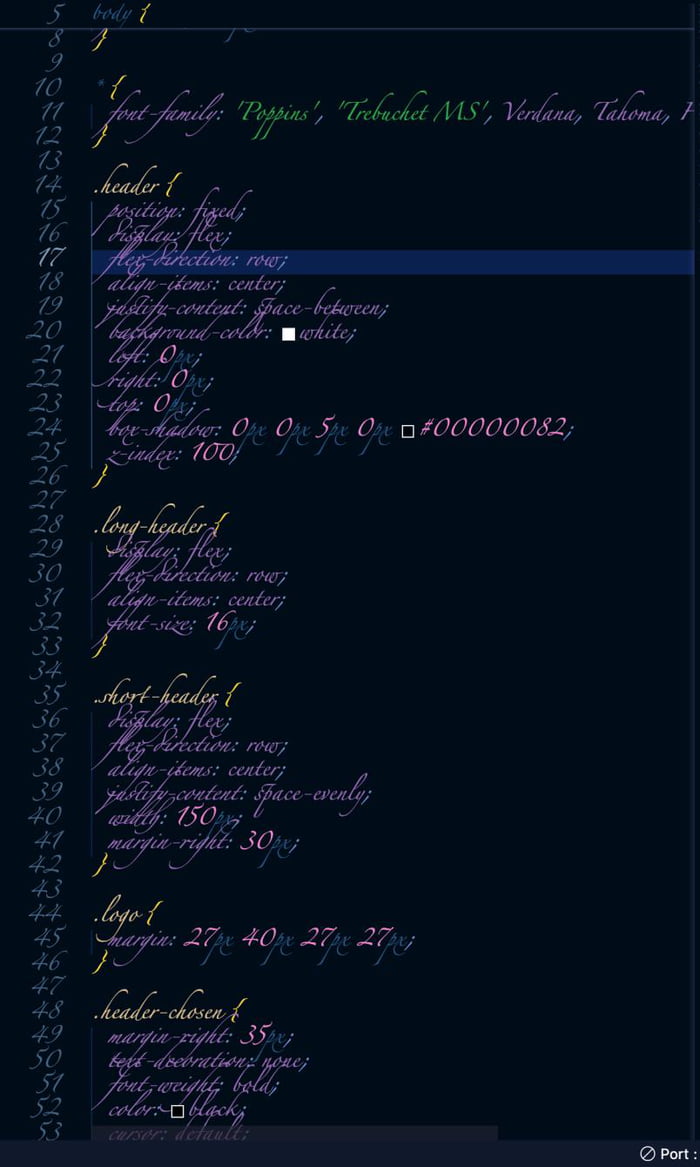 5 body {
8 }
9
10 * {
11 font-family: 'Poppins', 'Trebuchet MS', Verdana, Tahoma,
12 }
13
14 .header {
15 position: fixed;
16 display: flex;
17 flex-direction: row;
18 align-items: center;
19 justify-content: space-between;
20 background-color: white;
21 left: 0px;
22 right: 0px;
23 top: 0px;
24 box-shadow: 0px 0px 5px 0px #00000082;
25 z-index: 100;
26 }
27
28 .long-header {
29 display: flex;
30 flex-direction: row;
31 align-items: center;
32 font-size: 16px;
33 }
34
35 .short-header {
36 display: flex;
37 flex-direction: row;
38 align-items: center;
39 justify-content: space-evenly;
40 width: 150px;
41 margin-right: 30px;
42 }
43
44 .logo {
45 margin: 27px 40px 27px 27px;
46 }
47
48 .header-chosen {
49 margin-right: 35px;
50 text-decoration: none;
51 font-weight: bold;
52 color: black;
53 cursor: default;
Port :